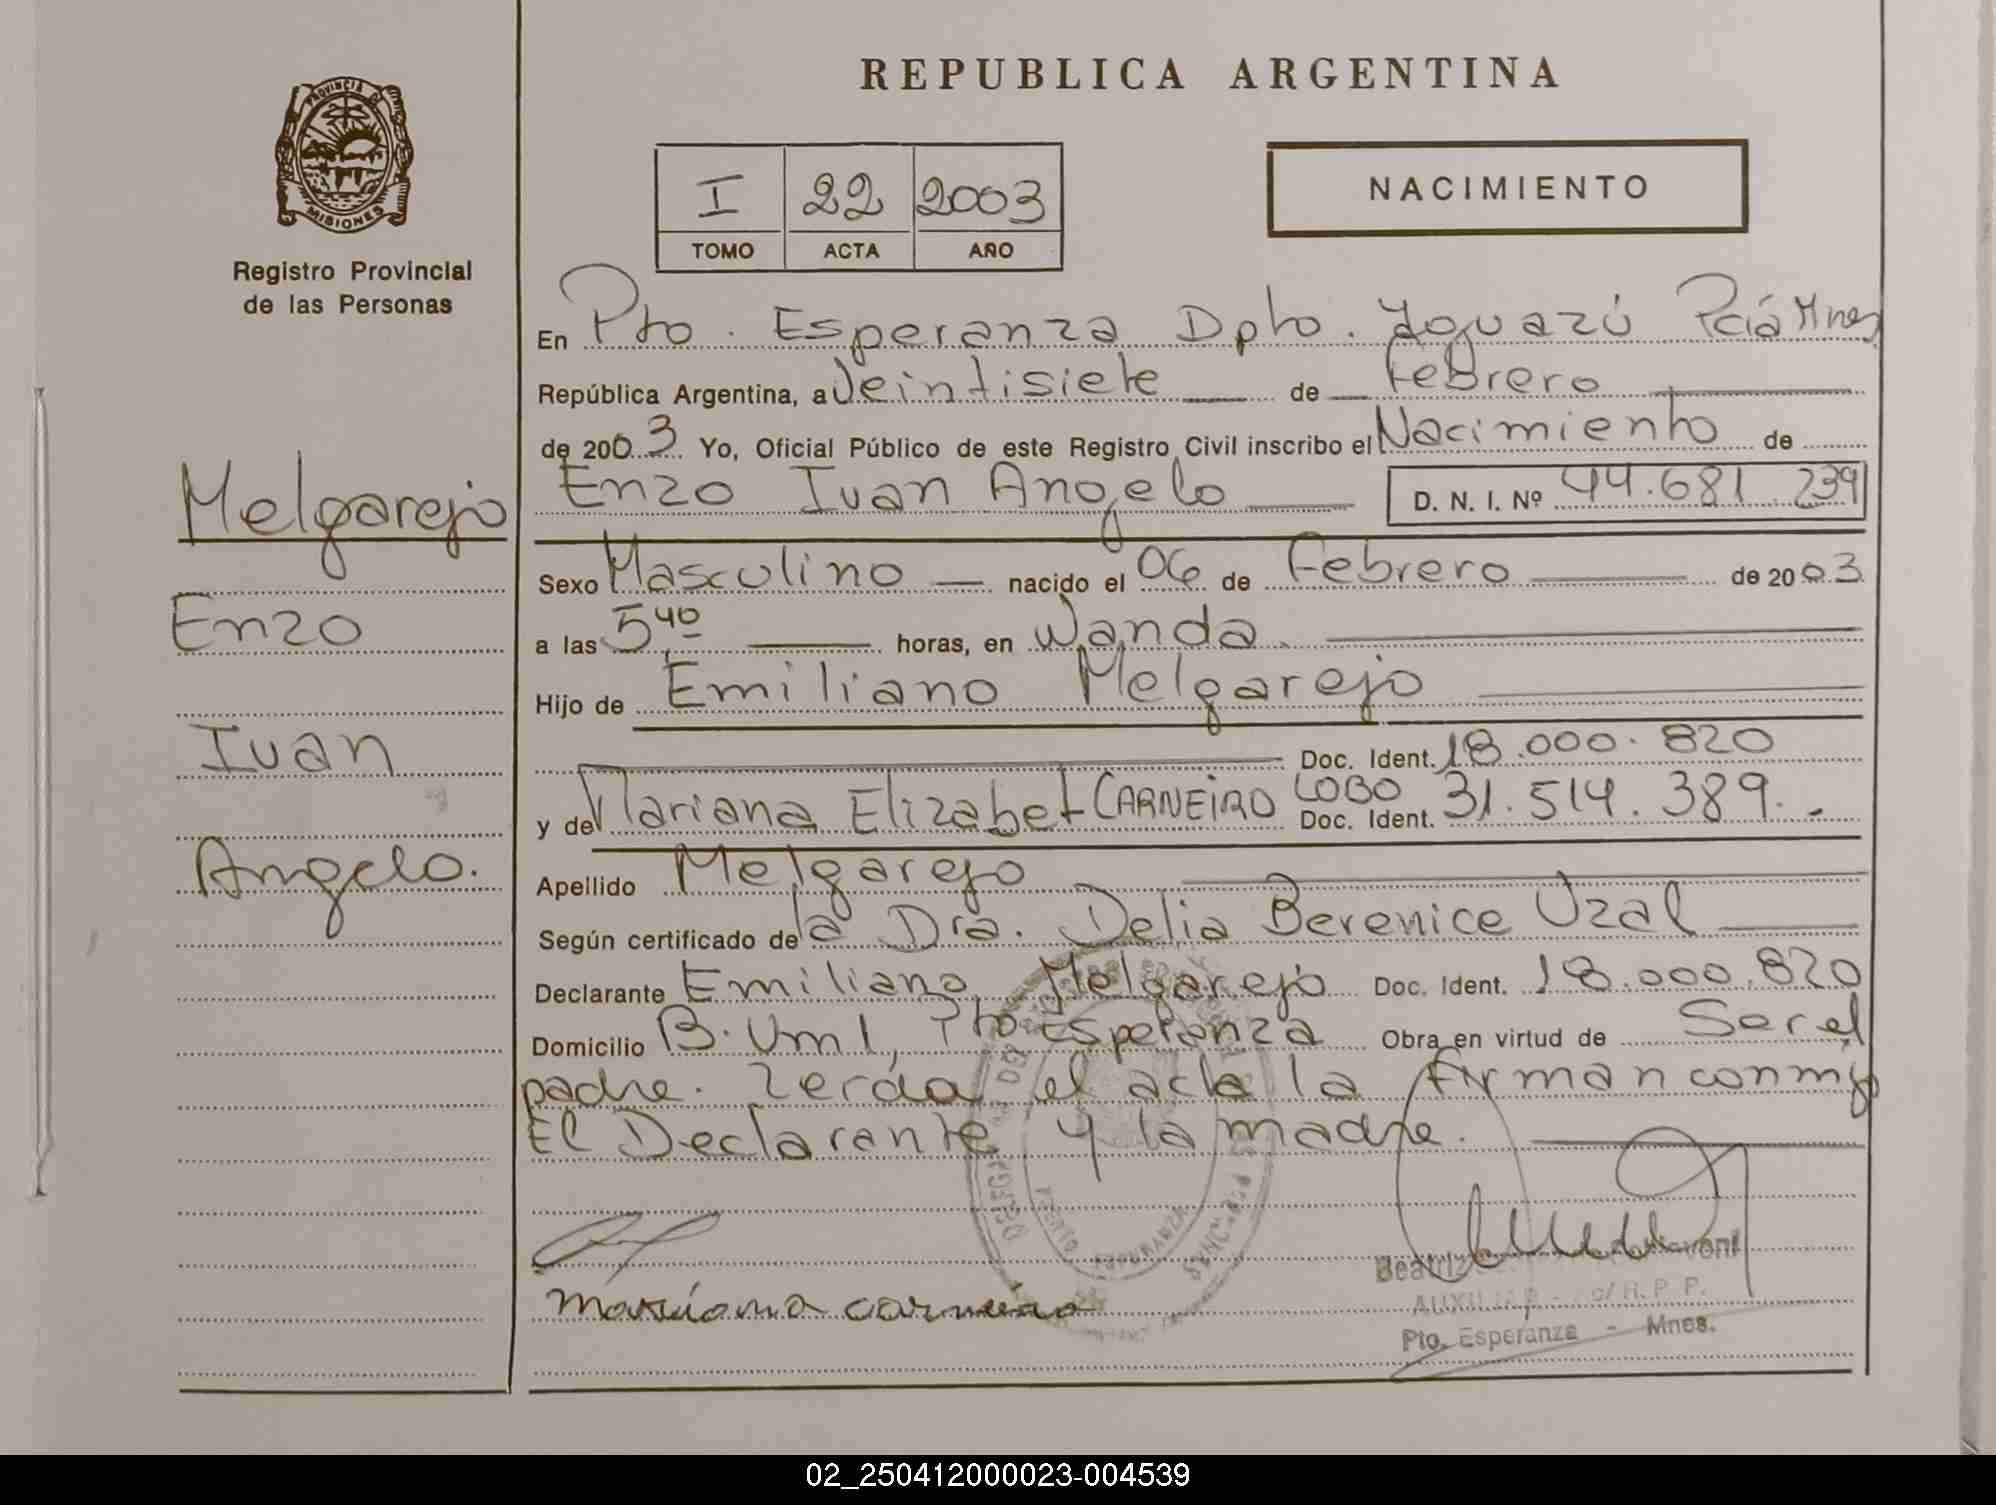 REPUBLICA ARGENTINA
PROVINCIA DE
MISIONES
Registro Provincial
de las Personas
I 22 2003
TOMO ACTA AÑO
NACIMIENTO
En Pto. Esperanza Dpto. Iguazú Pcia Mnes
República Argentina, a Veintisiete de Febrero
de 2003 Yo, Oficial Público de este Registro Civil inscribo el Nacimiento de
Enzo Ivan Angelo D. N. I. Nº 44.681.239
Melgarejo
Enzo
Ivan
Angelo.
Sexo Masculino nacido el 06 de Febrero de 2003
a las 5,40 horas, en Wanda.
Hijo de Emiliano Melgarejo
Doc. Ident. 18.000.820
y de Mariana Elizabet CARNEIRO LOBO Doc. Ident. 31.514.389.
Apellido Melgarejo
Según certificado de la Dra. Delia Berenice Uzal
Declarante Emiliano Melgarejo Doc. Ident. 18.000.820
Domicilio B. Um 1, Pto Esperanza Obra en virtud de Ser el
padre. Leída el acta la firman conmigo
El Declarante y la madre.
mariana carneiro
Beatriz
AUXILIAR
R. P. P.
Pto. Esperanza - Mnes.
02_250412000023-004539